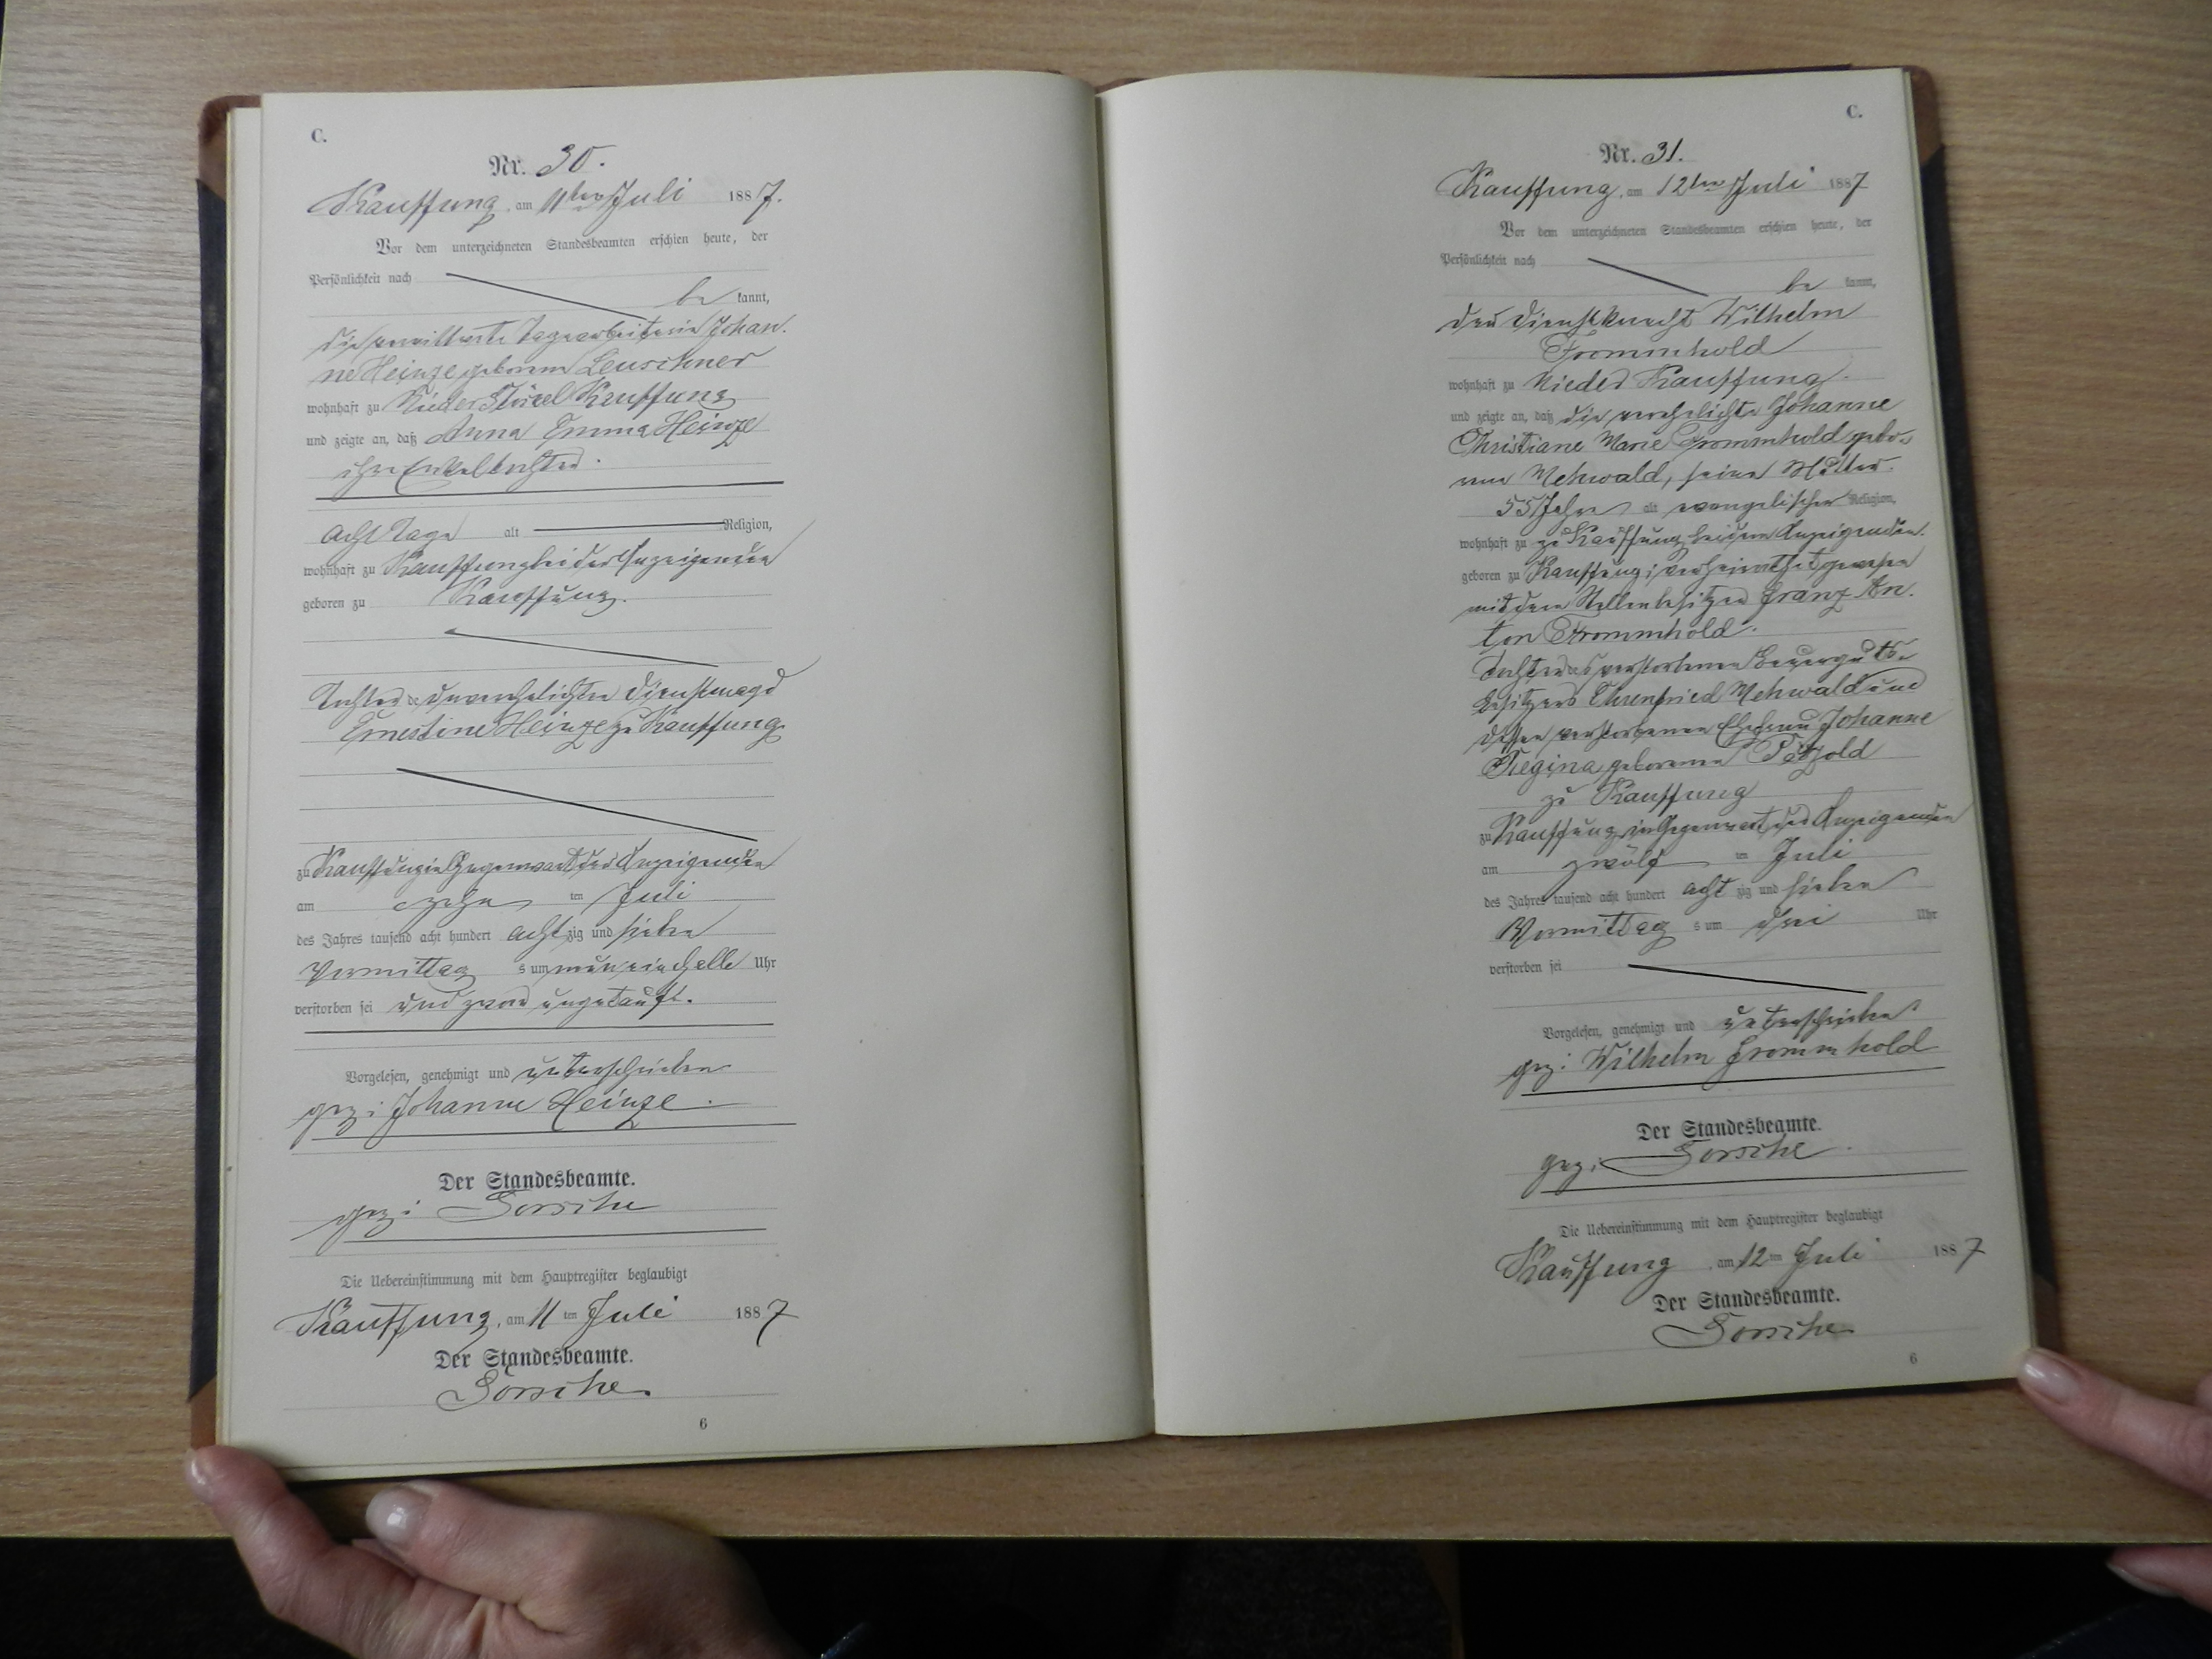 C.
Nr. 30.
Kauffung, am 11ten Juli 1887.
Vor dem unterzeichneten Standesbeamten erschien heute, der
Persönlichkeit nach
be kannt,
die verwittwete Tagearbeiterin Johan-
ne Heinze geborene Leuschner
wohnhaft zu Nieder Kauffung
und zeigte an, daß Anna Emma Heinze
ihre Enkeltochter.
acht Tage alt Religion,
wohnhaft zu Kauffung bei der Anzeigenden
geboren zu Kauffung.
Tochter der unverehelichten Dienstmagd
Ernestine Heinze zu Kauffung
zu Kauffung in Gegenwart der Anzeigenden
am zehn ten Juli
des Jahres tausend acht hundert acht zig und sieben
Vormittag s um neun ein halb Uhr
verstorben sei und zwar ungetauft.
Vorgelesen, genehmigt und unterschrieben
gez: Johanne Heinze.
Der Standesbeamte.
gez:
Die Uebereinstimmung mit dem Hauptregister beglaubigt
Kauffung, am 11 ten Juli 1887
Der Standesbeamte.
6
C.
Nr. 31.
Kauffung, am 12ten Juli 1887
Vor dem unterzeichneten Standesbeamten erschien heute, der
Persönlichkeit nach
be kannt,
der Dienstknecht Wilhelm
Frommhold
wohnhaft zu Nieder Kauffung.
und zeigte an, daß die verehelichte Johanne
Christiane Marie Frommhold gebo-
rene Mehwald, seine Mutter.
55 Jahre alt evangelischer Religion,
wohnhaft zu zu Kauffung bei dem Anzeigenden.
geboren zu Kauffung; verheirathet gewesen
mit dem Stellenbesitzer Franz An-
ton Frommhold.
Tochter des verstorbenen Bauerguts-
besitzers Ehrenfried Mehwald und
dessen verstorbenen Ehefrau Johanne
Regina geborenen Pätzold
zu Kauffung
zu Kauffung in Gegenwart des Anzeigenden
am zwölf ten Juli
des Jahres tausend acht hundert acht zig und sieben
Vormittag s um drei Uhr
verstorben sei
Vorgelesen, genehmigt und unterschrieben
gez: Wilhelm Frommhold
Der Standesbeamte.
gez:
Die Uebereinstimmung mit dem Hauptregister beglaubigt
Kauffung, am 12 ten Juli 1887
Der Standesbeamte.
6